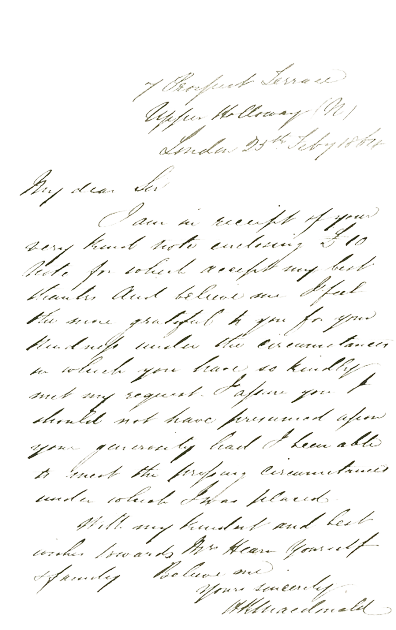 7 Prospect Terrace
Upper Holloway (N)
London 25th Feby 1864
My dear Sir
I am in receipt of your
very kind note enclosing £10
note for which accept my best
thanks And believe me I feel
the more grateful to you for your
kindness under the circumstances
in which you have so kindly
met my request. I assure you I
should not have presumed upon
your generosity had I been able
to meet the pressing circumstances
under which I was placed.
With my kindest and best
wishes towards Mrs Hearn Yourself
& family Believe me
Yours sincerely
Macdonald